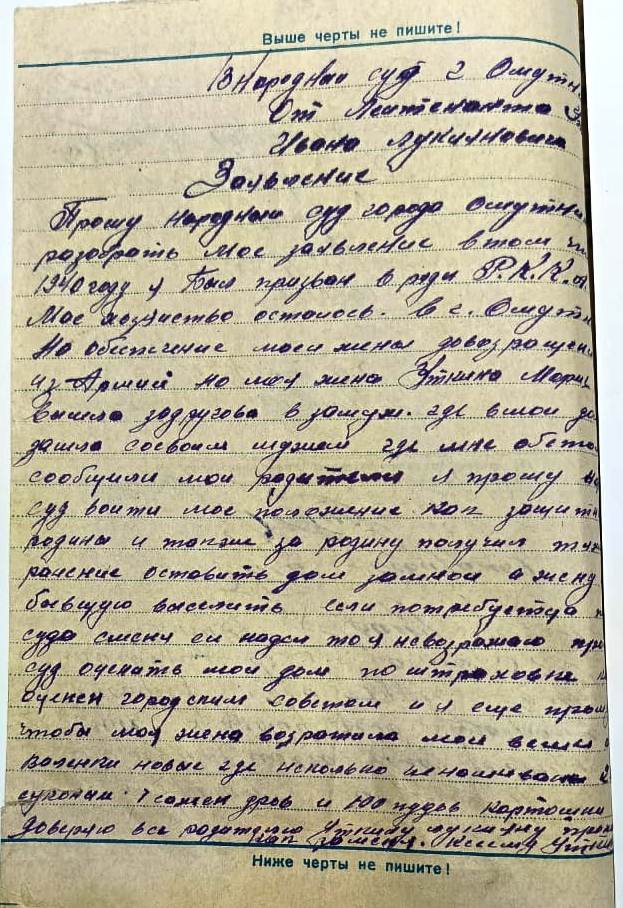 Выше черты не пишите!
В Народный суд г Омутн
От Лейтенанта
Ивана Лукияновича
Заявление
Прошу народный суд города Омутни
разобрать мое заявление в том чи
1940 году я был призван в ряды Р.К.К.А
Мое хозяиство осталось. в г. Омутн
На обеспечение моеи жены довозращени
из Армии но моя жена Уткина Мария
вышла задругова в замуж. где вмои до
зашла сосвоим мужем где мне обетом
сообщили мои родители я прошу на
суд воити мое положение как защитн
родины и также за родину получил тяж
ранение оставить дом замной а жену
бывшую выселить если потребуется
суда с меня еи надел то я невозражаю про
суд оценить мои дом по штраховке
оценки городским советом и я еще прошу
чтобы моя жена возратила мои вещи
валенки новые где несколько ненашивал 2
сухими 1 сажен дров и 100 пудов картошки
Доверяю все родителю Уткину Лукияну
Ниже черты не пишите!